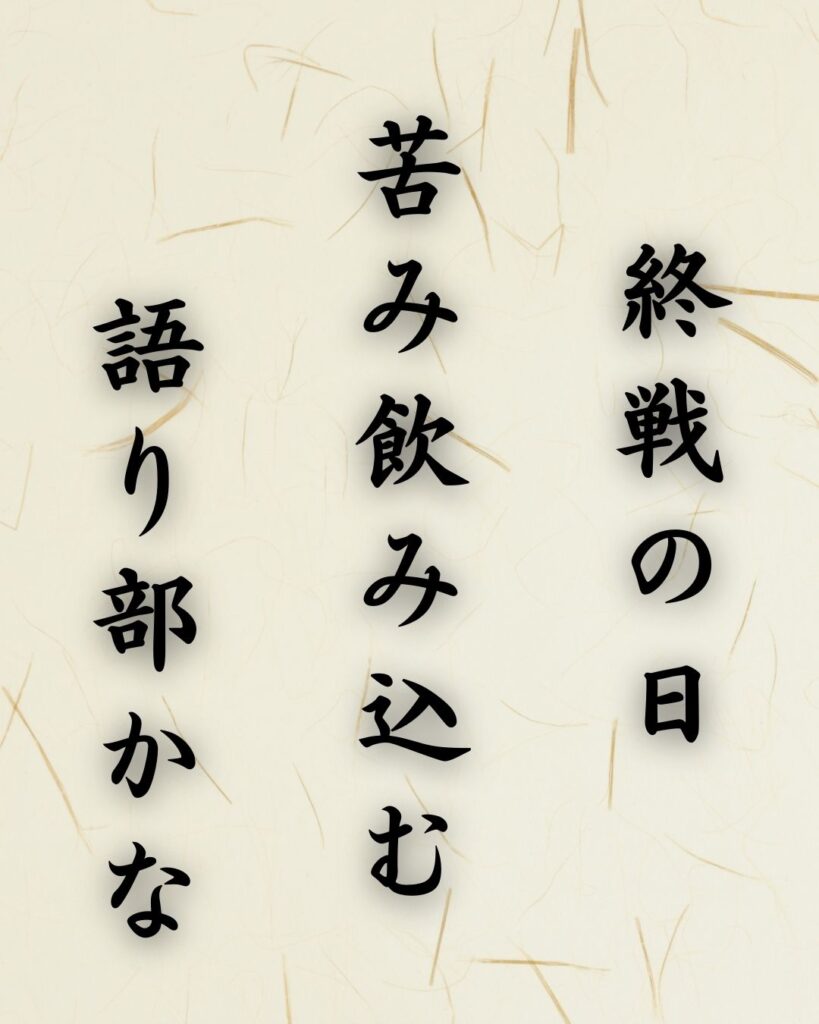 終戦の日
苦み飲み込む
語り部かな